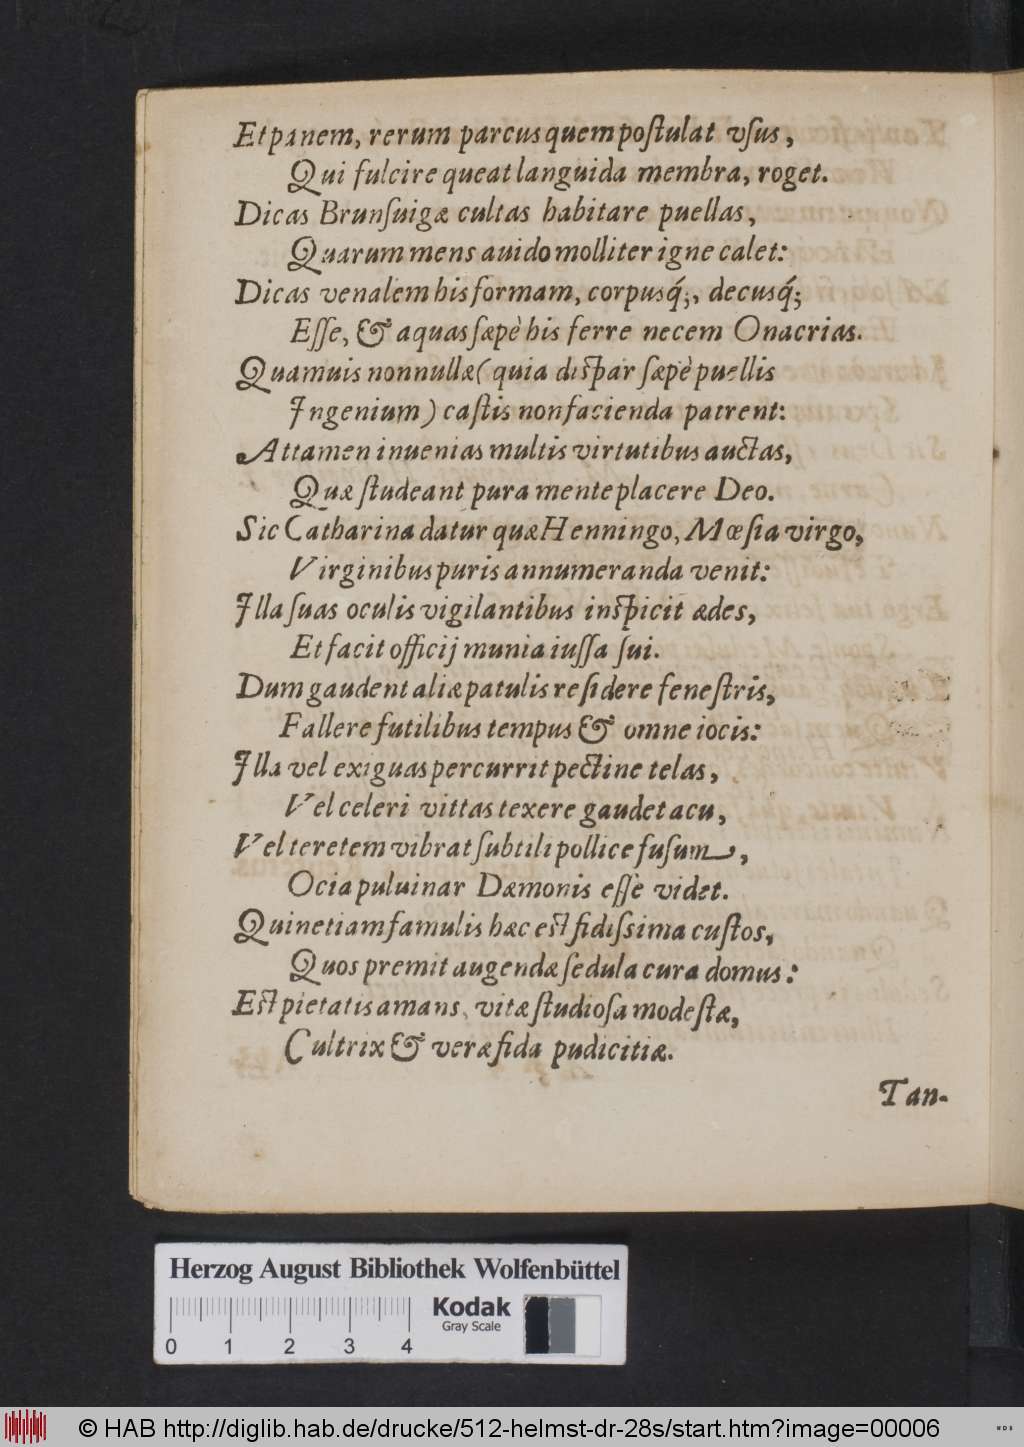 Et panem, rerum parcus quem poſtulat vſus,
Qui fulcire queat languida membra, roget.
Dicas Brunſuigæ cultas habitare puellas,
Quarum mens auido molliter igne calet:
Dicas venalem his formam, corpusq́;, decusq́;
Eſſe, & aquas ſæpè his ferre necem Onacrias.
Quamuis nonnullæ (quia diſpar ſæpè puellis
Jngenium) caſtis non facienda patrent:
Attamen inuenias multis virtutibus auctas,
Quæ ſtudeant pura mente placere Deo.
Sic Catharina datur quæ Henningo, Mœſia virgo,
Virginibus puris annumeranda venit:
Jlla ſuas oculis vigilantibus inſpicit ædes,
Et facit officij munia iuſſa ſui.
Dum gaudent aliæ patulis reſidere feneſtris,
Fallere futilibus tempus & omne iocis:
Jlla vel exiguas percurrit pectine telas,
Vel celeri vittas texere gaudet acu,
Vel teretem vibrat ſubtili pollice fuſum,
Ocia puluinar Dæmonis eſſè videt.
Quinetiam famulis hæc eſt fidiſsima cuſtos,
Quos premit augendæ ſedula cura domus:
Eſt pietatis amans, vitæ ſtudioſa modeſtæ,
Cultrix & veræ fida pudicitiæ.
Tan-
Herzog August Bibliothek Wolfenbüttel
Kodak
Gray Scale
0 1 2 3 4
© HAB http://diglib.hab.de/drucke/512-helmst-dr-28s/start.htm?image=00006